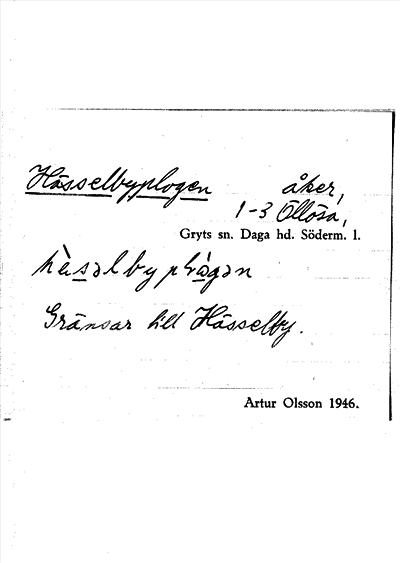 Hässelbyplogen åker,
1-3 Ullösa,
Gryts sn. Daga hd. Söderm. l.
hὲsəlbyplɷ̀gən
Gränsar till Hässelby.
Artur Olsson 1946.